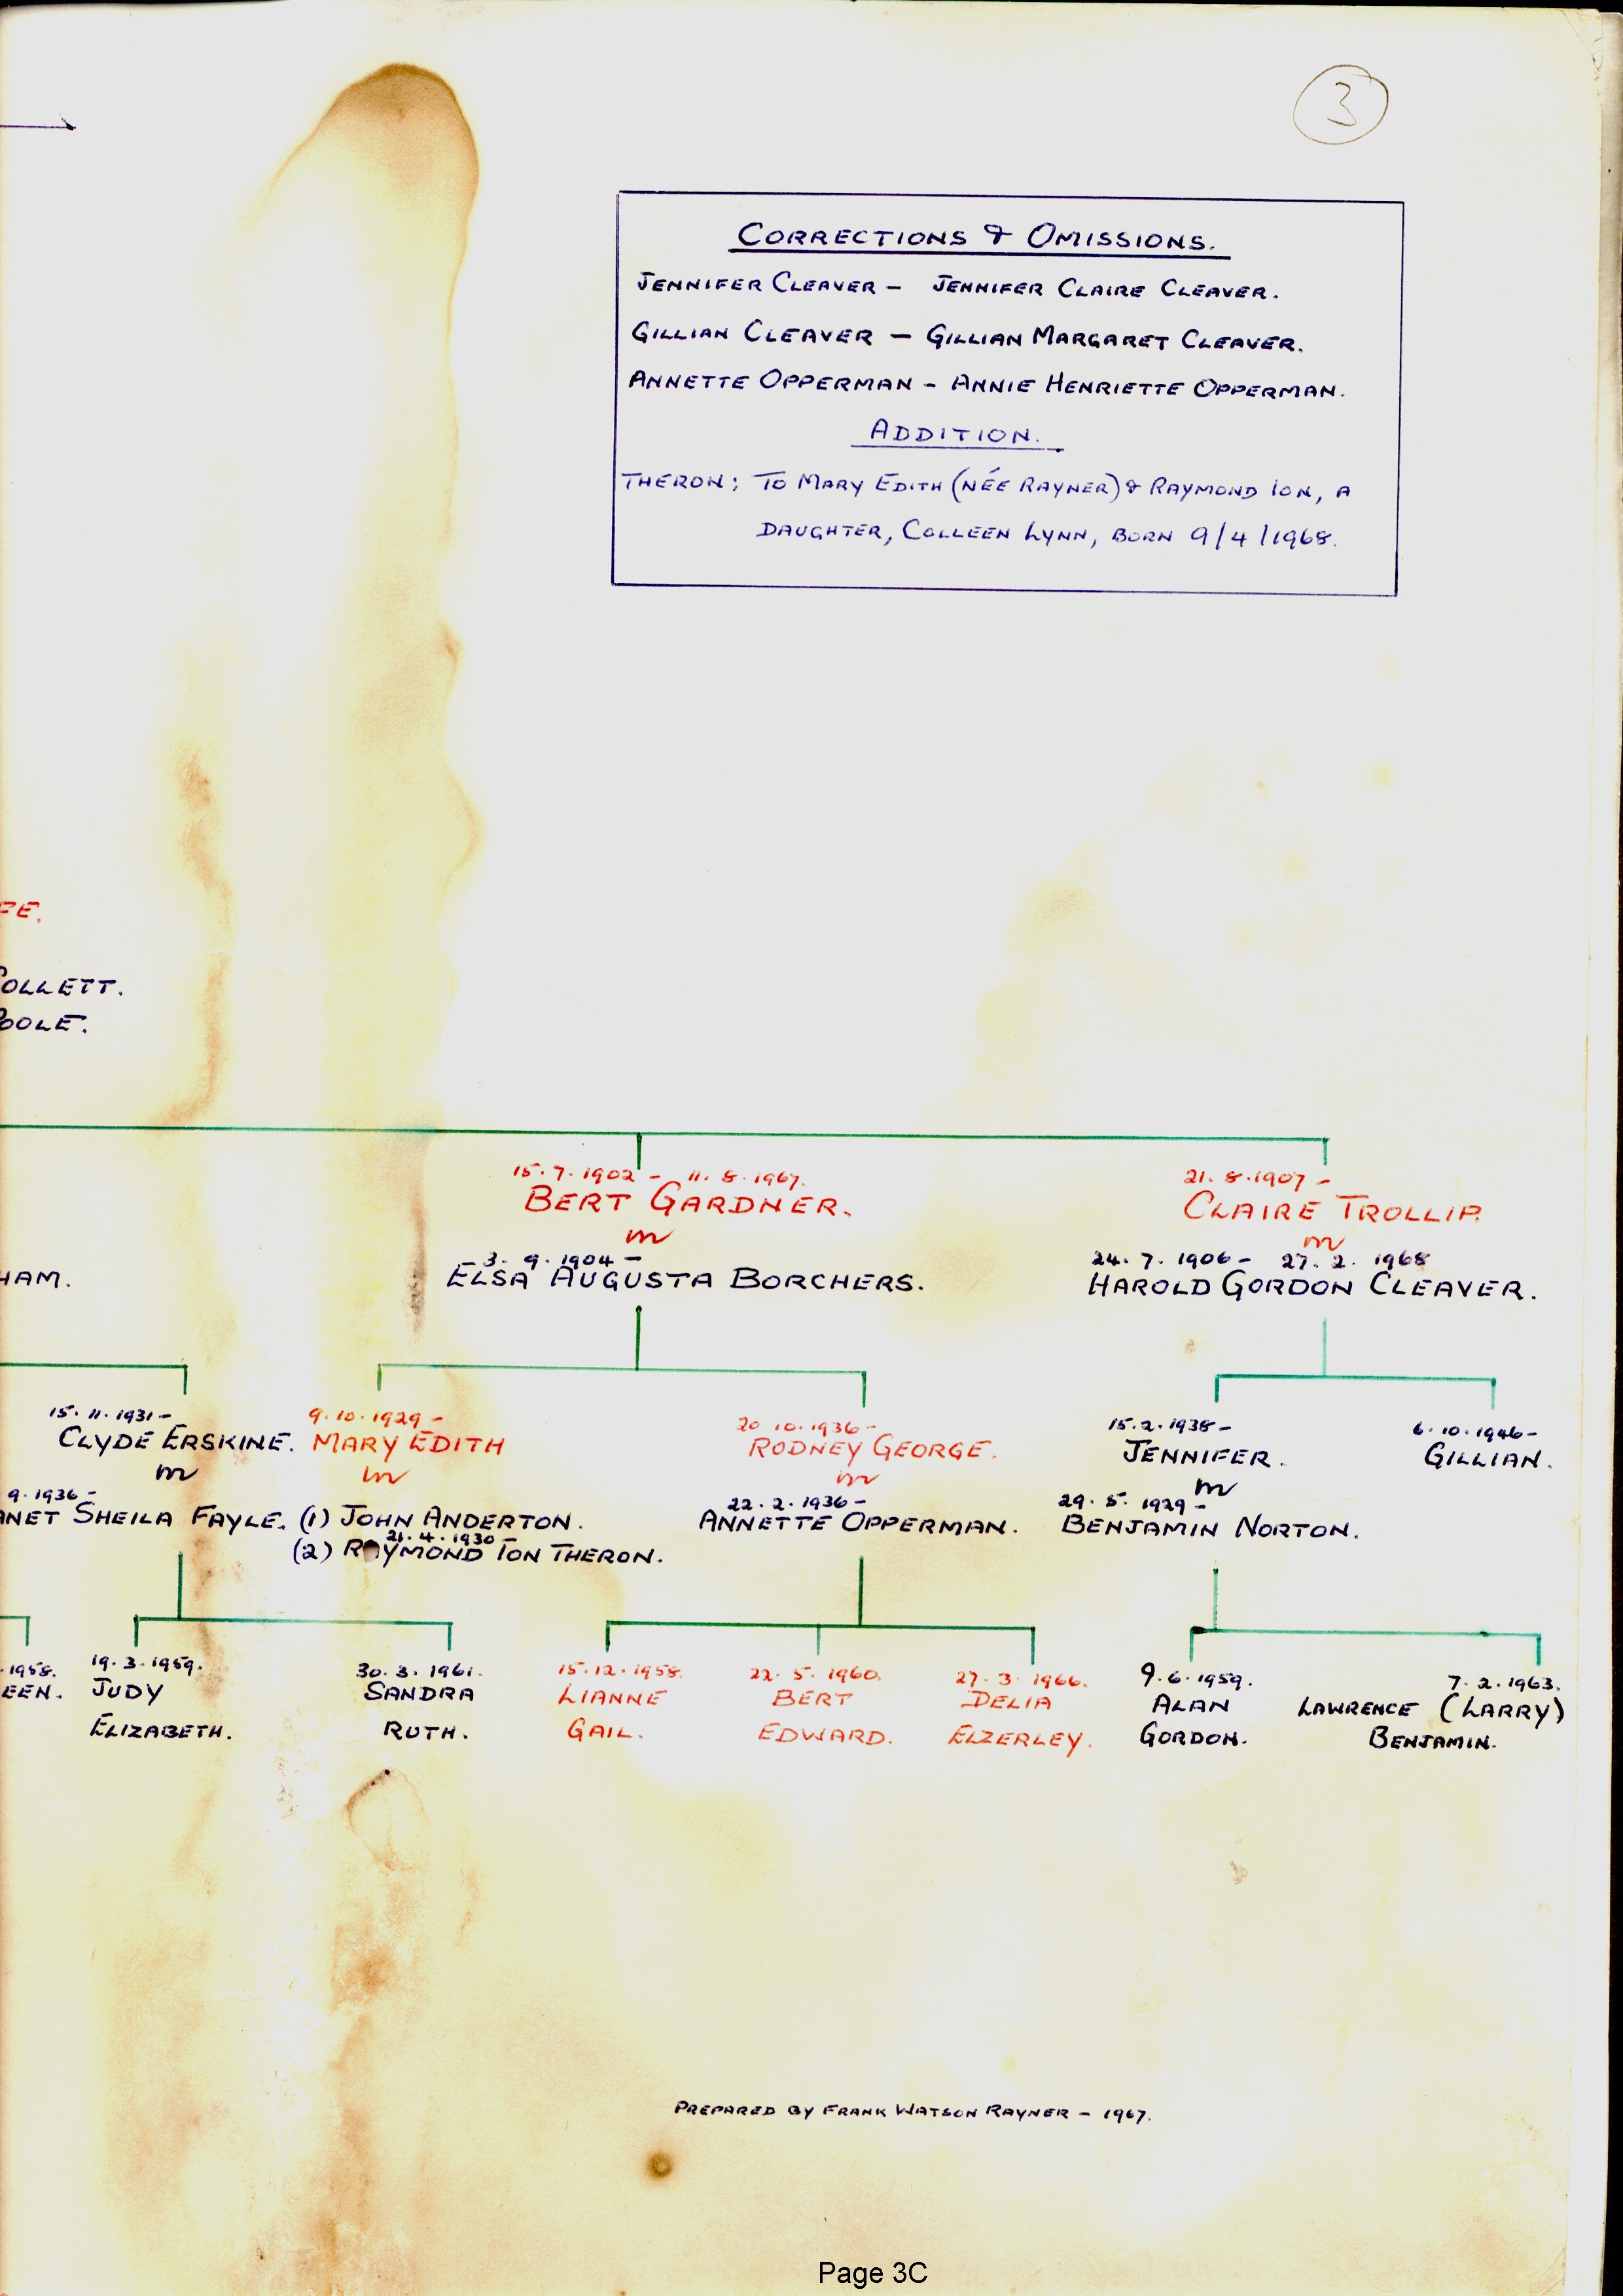 3
CORRECTIONS & OMISSIONS.
JENNIFER CLEAVER - JENNIFER CLAIRE CLEAVER.
GILLIAN CLEAVER - GILLIAN MARGARET CLEAVER.
ANNETTE OPPERMAN - ANNIE HENRIETTE OPPERMAN.
ADDITION.
THERON; TO MARY EDITH (NÉE RAYNER) & RAYMOND ION, A
DAUGHTER, COLLEEN LYNN, BORN 9/4/1968.
FE.
OLLETT.
OOLE.
15.7.1902 - 11.8.1967.
BERT GARDNER.
m
3.9.1904 -
ELSA AUGUSTA BORCHERS.
21.8.1907 -
CLAIRE TROLLIP.
m
24.7.1906 - 27.2.1968
HAROLD GORDON CLEAVER.
HAM.
15.11.1931 -
CLYDE ERSKINE.
m
9.1936 -
ANET SHEILA FAYLE.
9.10.1929 -
MARY EDITH
m
(1) JOHN ANDERTON.
21.4.1930
(2) RAYMOND ION THERON.
20.10.1936 -
RODNEY GEORGE.
m
22.2.1936 -
ANNETTE OPPERMAN.
15.2.1938 -
JENNIFER.
m
29.5.1929 -
BENJAMIN NORTON.
6.10.1946 -
GILLIAN.
.1958.
EEN.
19.3.1959.
JUDY
ELIZABETH.
30.3.1961.
SANDRA
RUTH.
15.12.1958.
LIANNE
GAIL.
22.5.1960.
BERT
EDWARD.
27.3.1966.
DELIA
ELZERLEY.
9.6.1959.
ALAN
GORDON.
7.2.1963.
LAWRENCE (LARRY)
BENJAMIN.
PREPARED BY FRANK WATSON RAYNER - 1967.
Page 3C